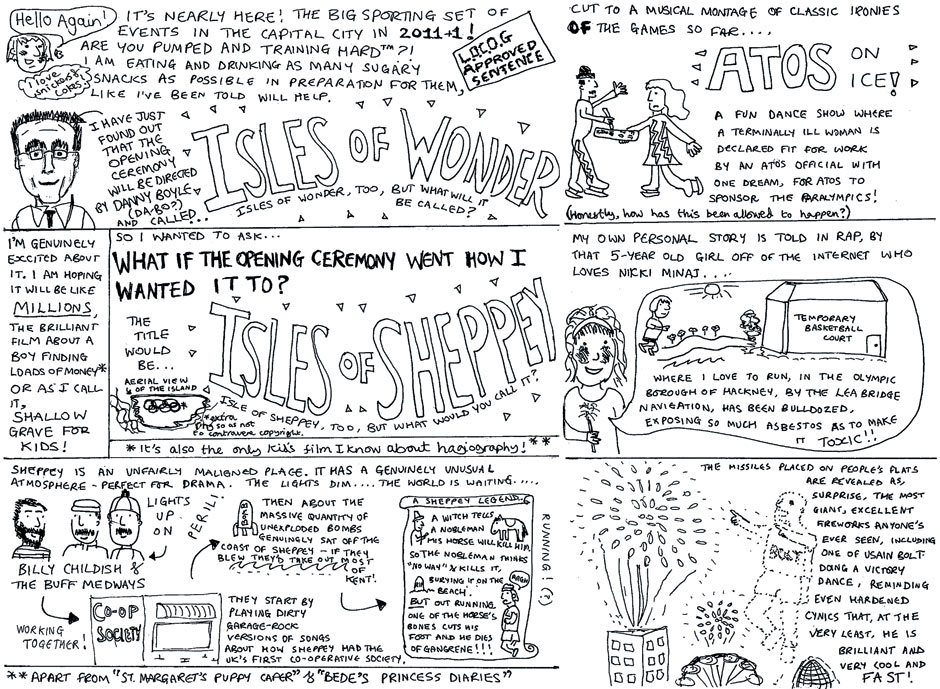 Hello Again!
IT'S NEARLY HERE! THE BIG SPORTING SET OF
EVENTS IN THE CAPITAL CITY IN 2011+1!
ARE YOU PUMPED AND TRAINING HARD™?!
I AM EATING AND DRINKING AS MANY SUGARY
SNACKS AS POSSIBLE IN PREPARATON FOR THEM,
LIKE I'VE BEEN TOLD WILL HELP.
I love
snickers &
cokes
LOCOG
APPROVED
SENTENCE
I HAVE JUST
FOUND OUT
THAT THE
OPENING
CEREMONY
WILL BE DIRECTED
BY DANNY BOYLE
(DA-BO?)
AND CALLED...
ISLES OF WONDER
ISLES OF WONDER, TOO, BUT WHAT WILL IT
BE CALLED?
CUT TO A MUSICAL MONTAGE OF CLASSIC IRONIES
OF THE GAMES SO FAR....
ATOS ON
ICE!
A FUN DANCE SHOW WHERE
A TERMINALLY ILL WOMAN IS
DECLARED FIT FOR WORK
BY AN ATOS OFFICIAL WITH
ONE DREAM, FOR ATOS TO
SPONSOR THE PARALYMPICS!
(Honestly, how has this been allowed to happen?)
I'M GENUINELY
EXCITED ABOUT
IT. I AM HOPING
IT WILL BE LIKE
MILLIONS,
THE BRILLIANT
FILM ABOUT A
BOY FINDING
LOADS OF MONEY*
OR AS I CALL
IT,
SHALLOW
GRAVE FOR
KIDS!
SO I WANTED TO ASK...
WHAT IF THE OPENING CEREMONY WENT HOW I
WANTED IT TO?
THE
TITLE
WOULD
BE...
ISLES OF SHEPPEY
AERIAL VIEW
OF THE ISLAND
*extra
so as not
to contravere copyright.
ISLE OF SHEPPEY, TOO, BUT WHAT WOULD YOU CALL IT?
*It's also the only kids film I know about hagiography!**
MY OWN PERSONAL STORY IS TOLD IN RAP, BY
THAT 5-YEAR OLD GIRL OFF OF THE INTERNET WHO
LOVES NIKKI MINAJ....
TEMPORARY
BASKETBALL
COURT
WHERE I LOVE TO RUN, IN THE OLYMPIC
BOROUGH OF HACKNEY, BY THE LEA BRIDGE
NAVIGATION, HAS BEEN BULLDOZED,
EXPOSING SO MUCH ASBESTOS AS TO MAKE
IT TOXIC!!
SHEPPEY IS AN UNFAIRLY MALIGNED PLACE. IT HAS A GENUINELY UNUSUAL
ATMOSPHERE - PERFECT FOR DRAMA. THE LIGHTS DIM.... THE WORLD IS WAITING.....
LIGHTS
UP
ON
BILLY CHILDISH &
THE BUFF MEDWAYS
WORKING
TOGETHER!
CO-OP
SOCIETY
THEY START BY
PLAYING DIRTY
GARAGE-ROCK
VERSIONS OF SONGS
ABOUT HOW SHEPPEY HAD THE
UK'S FIRST CO-OPERATIVE SOCIETY.
PERIL!
THEN ABOUT THE
MASSIVE QUANTITY OF
UNEXPLODED BOMBS
GENUINELY SAT OFF THE
COAST OF SHEPPEY - IF THEY
BLEW THEY'D TAKE OUT MOST
OF
KENT!
A SHEPPEY LEGEND..
A WITCH TELLS
A NOBLEMAN
HIS HORSE WILL KILL HIM.
SO THE NOBLEMAN THINKS
"NO WAY" & KILLS IT,
BURYING IT ON THE
BEACH.
BUT OUT RUNNING
ONE OF THE HORSE'S
BONES CUTS HIS
FOOT AND HE DIES
OF GANGRENE!!!
ARGH
RUNNING! (?)
**APART FROM "ST. MARGARET'S PUPPY CAPER" & "BEDE'S PRINCESS DIARIES"
THE MISSILES PLACED ON PEOPLE'S FLATS
ARE REVEALED AS,
SURPRISE, THE MOST
GIANT, EXCELLENT
FIREWORKS ANYONE'S
EVER SEEN, INCLUDING
ONE OF USAIN BOLT
DOING A VICTORY
DANCE, REMINDING
EVEN HARDENED
CYNICS THAT, AT THE
VERY LEAST, HE IS
BRILLIANT AND
VERY COOL AND
FAST!
BOLT